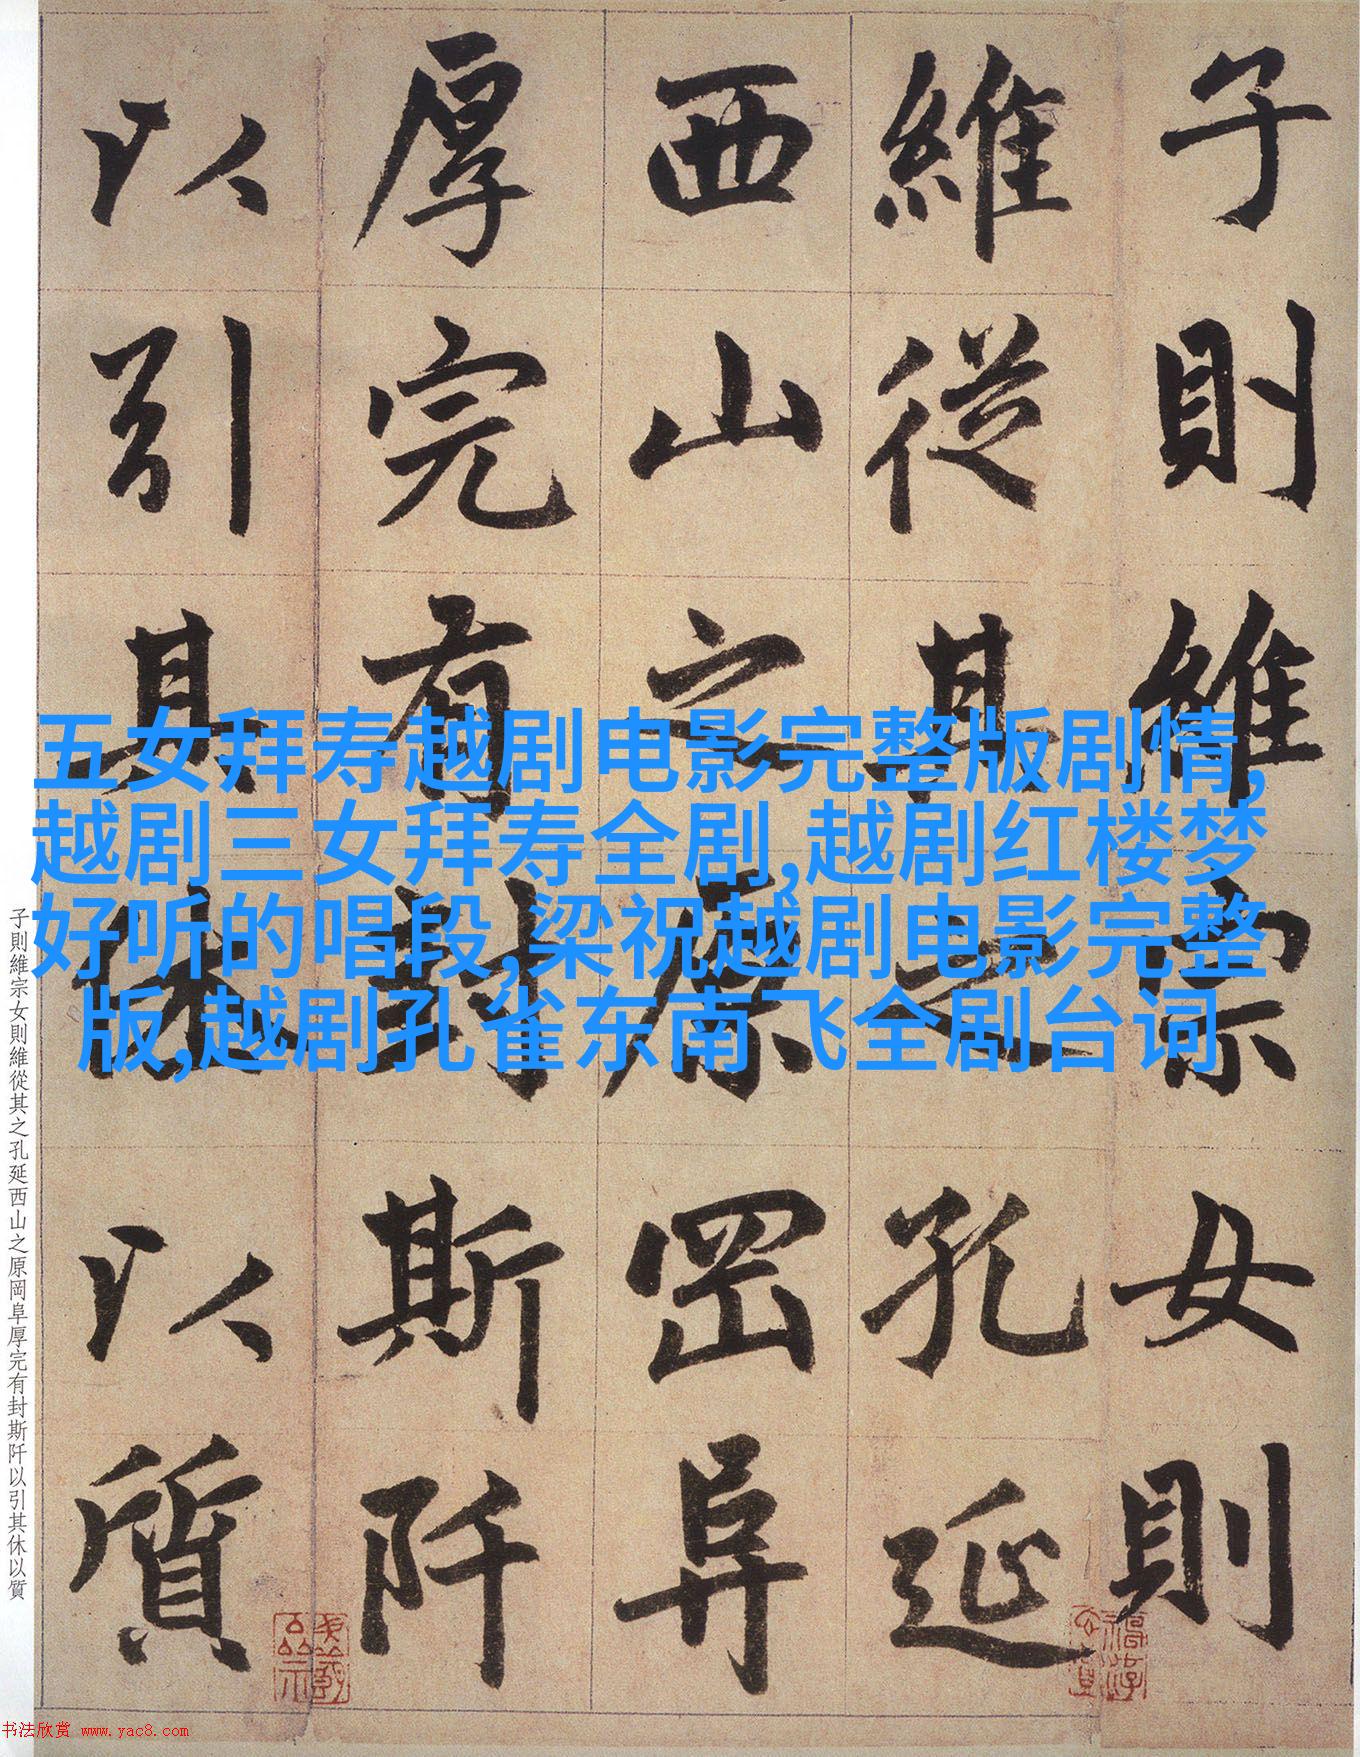 子則維宗女則
維從其之孔延
西山之原岡阜
厚完有封斯阡
以引其休以質
五女拜寿越剧电影完整版剧情,
越剧三女拜寿全剧,越剧红楼梦
好听的唱段,梁祝越剧电影完整
版,越剧孔雀东南飞全剧台词
子則維宗女則維從其之孔延西山之原岡阜厚完有封斯阡以引其休以質
书法欣赏 www.yac8.com